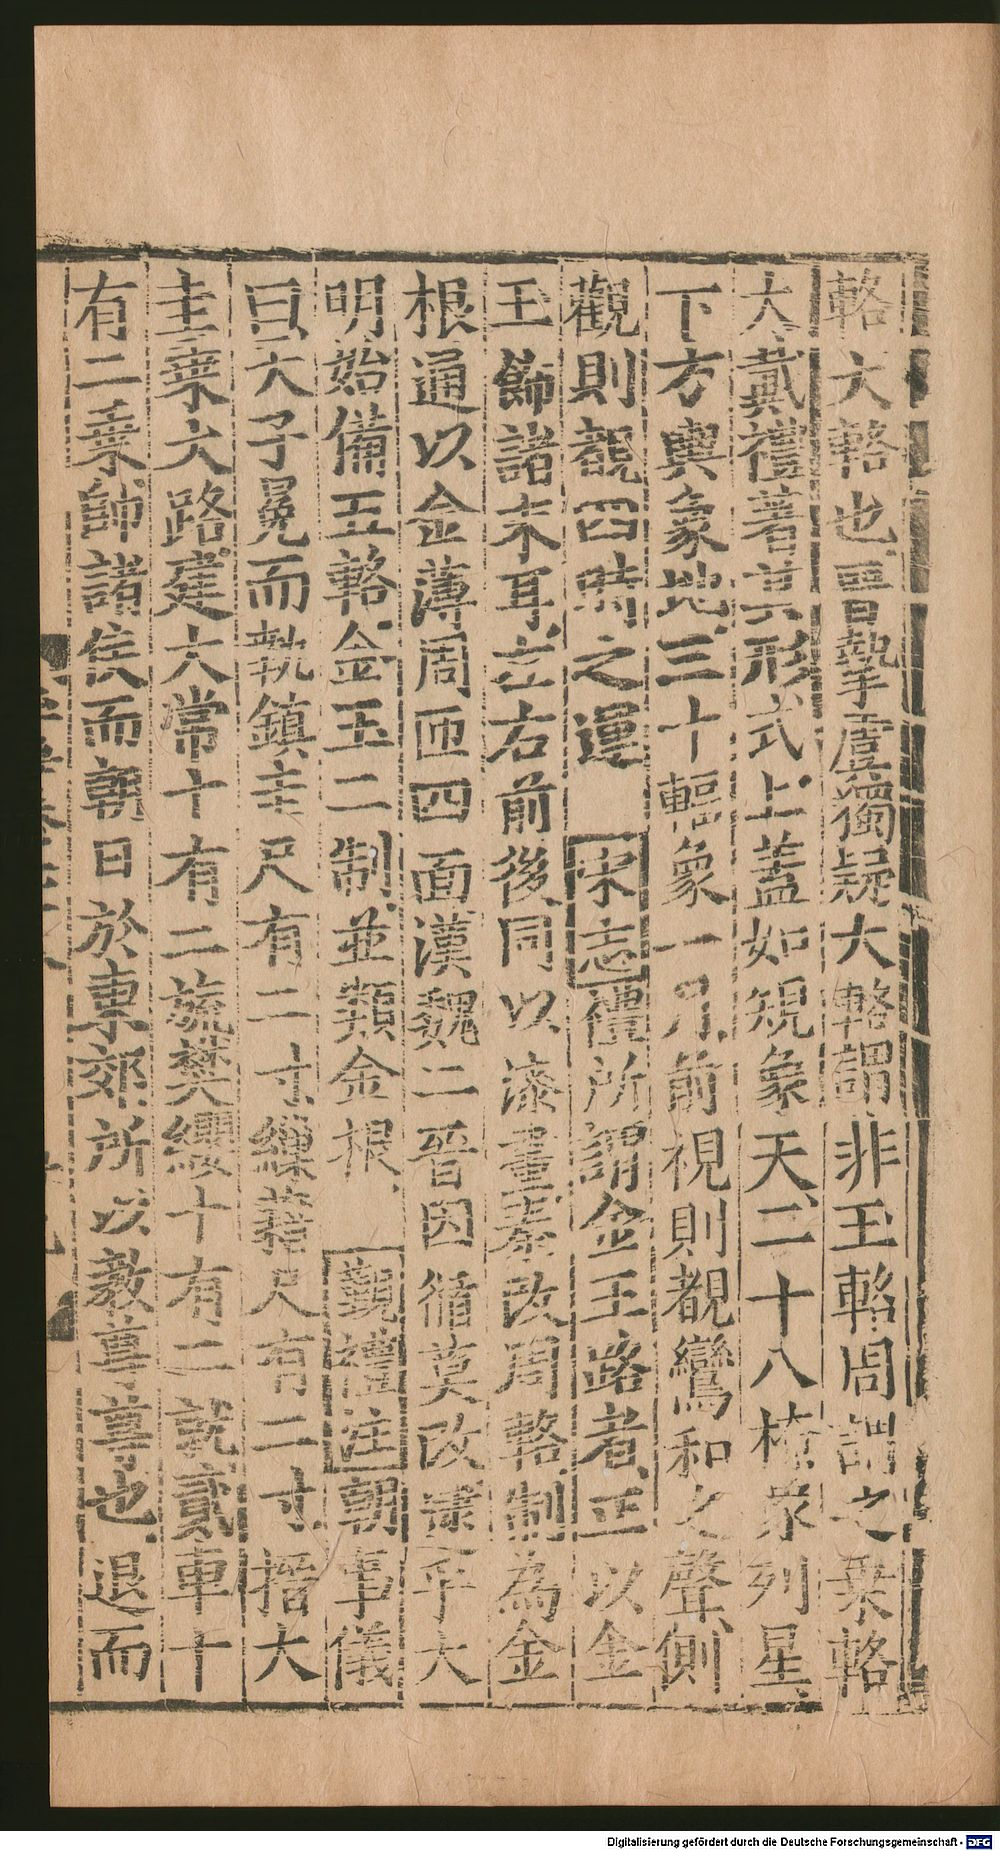 輅大輅也晋摯虞獨疑大輅謂非玉輅周謂之乗輅
大戴禮著其形式上蓋如䂓象天二十八橑象列星
下方輿象地三十輻象一月前視則覩鸞和之聲側
觀則覩四時之運　宋志禮所謂金玉路者正以金
玉飾諸末耳左右前後同以漆畫秦改周輅制為金
根通以金薄周匝四面漢魏二晉因循莫改逮乎大
明始備五輅金玉二制並類金根　覲禮注朝事儀
曰天子冕而執鎮圭尺有二寸繅藉尺有二寸搢大
圭乗大路建大常十有二旒樊纓十有二就貳車十
有二乗帥諸侯而朝日於東郊所以教尊尊也退而
Digitalisierung gefördert durch die Deutsche Forschungsgemeinschaft - DFG